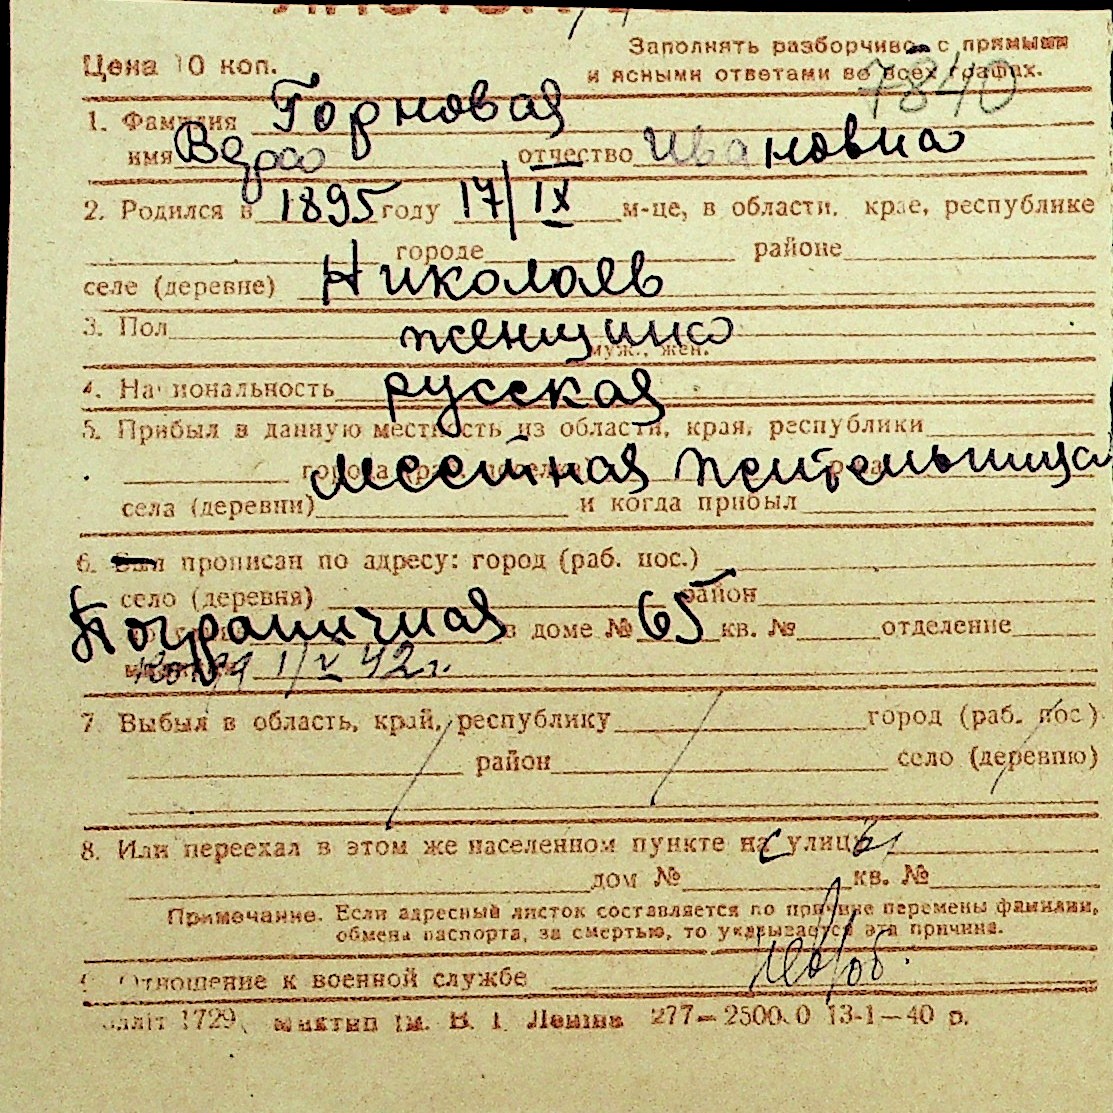 Цена 10 коп.
Заполнять разборчиво, с прямыми
и ясными ответами во всех графах.
7840
1. Фамилия Горновая
имя Вера отчество Ивановна
2. Родился в 1895 году 17/IX м-це, в области, крае, республике
городе районе
селе (деревне) Николаев
3. Пол женщина
муж., жен.
4. Национальность русская
5. Прибыл в данную местность из области, края, республики
города (раб. поселка) местная жительница
села (деревни) и когда прибыл
6. Был прописан по адресу: город (раб. пос.)
село (деревня) район
Пограничная в доме № 65 кв. № отделение
1/V 42 г.
7. Выбыл в область, край, республику город (раб. пос.)
район село (деревню)
8. Или переехал в этом же населенном пункте на с улицы
дом № кв. №
Примечание. Если адресный листок составляется по причине перемены фамилии,
обмена паспорта, за смертью, то указывается эта причина.
Отношение к военной службе
1729 им. В. І. Леніна 277—25000 13-1—40 р.